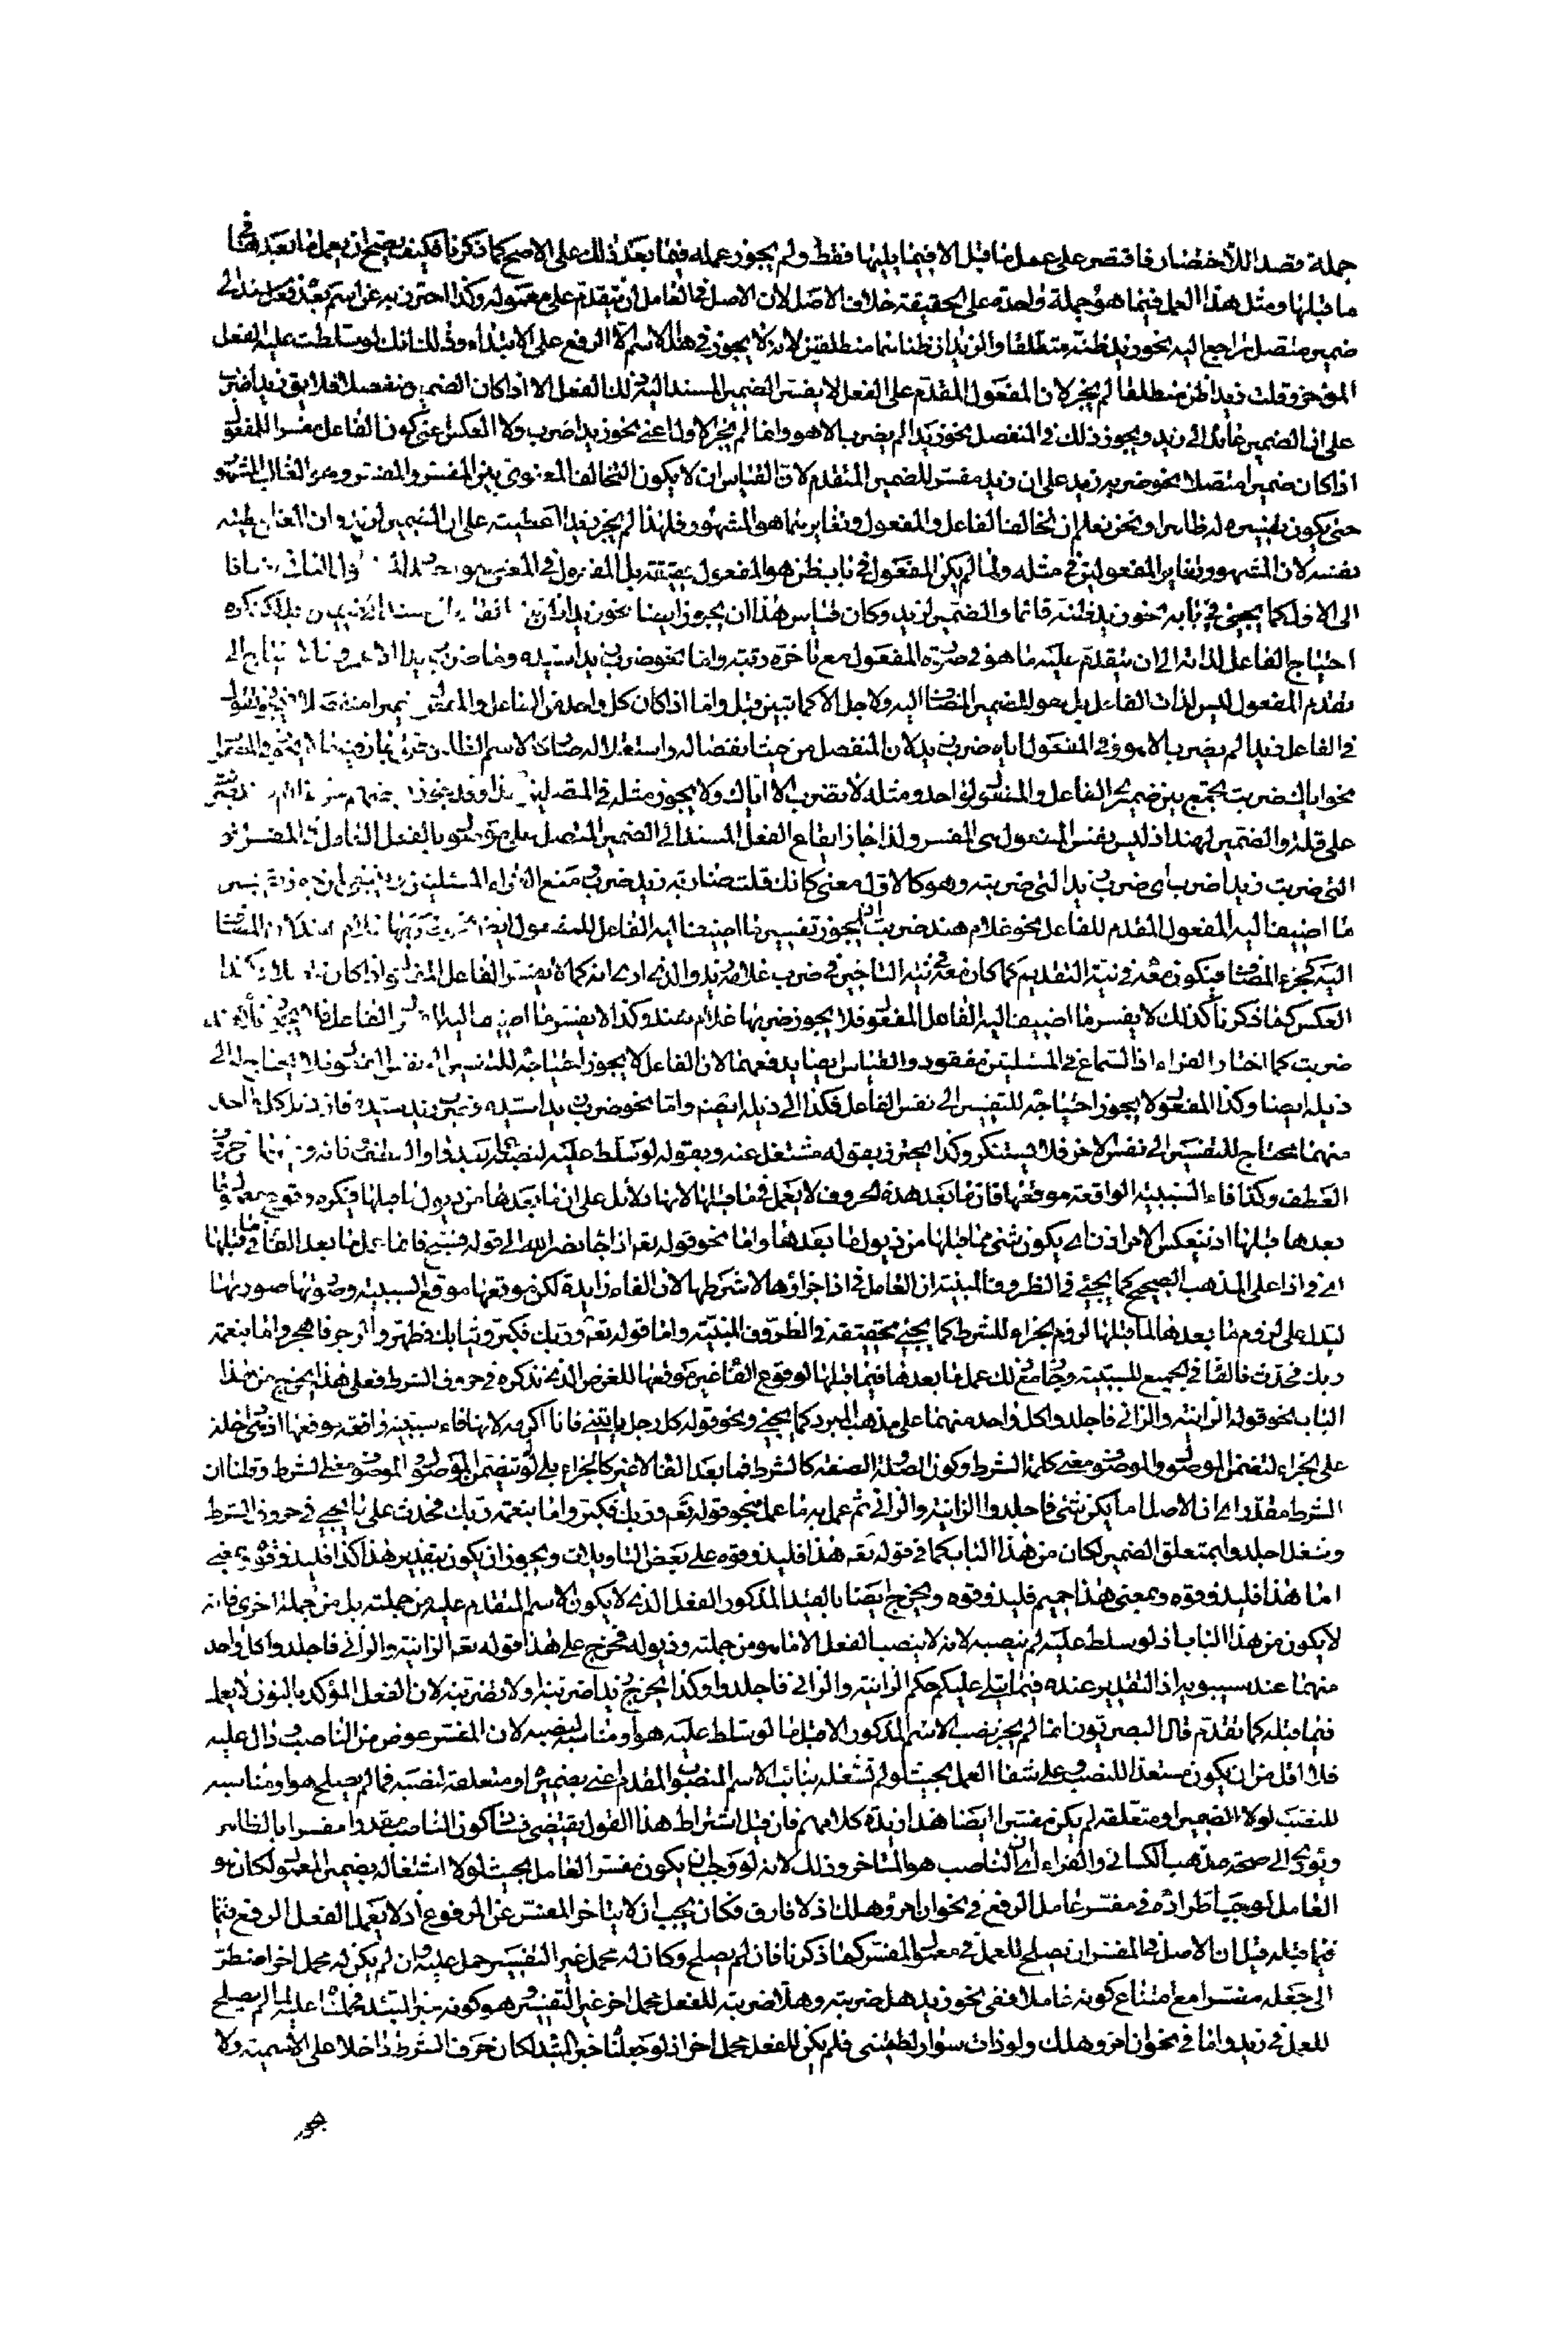 جملة قصدا للاختصار فاقتصر على عمل ما قبل الا فيما يليها فقط ولم يجوز عمله فيما بعد ذلك على الاصح كما ذكرنا فكيف يصح ان يعمل ما بعدها في
ما قبلها ومثل هذا العمل فيما هو جملة واحدة على الحقيقة خلاف الاصل لان الاصل في العامل ان يتقدم على معموله وكذا احترز به عن اسم بعده فعل مسند الى
ضمير متصل راجع اليه نحو زيد ظنه منطلقا والزيدان ظناهما منطلقين لانه لا يجوز في هذا الاسم الا الرفع على الابتداء وذلك لانك لو سلطت عليه الفعل
المؤخر وقلت زيدا ظن منطلقا لم يجز لان المفعول المقدم على الفعل لا يفسر الضمير المسند اليه ذلك الفعل الا اذا كان الضمير منفصلا فلا يق زيدا ضرب
على ان الضمير عائد الى زيد ويجوز ذلك في المنفصل نحو زيدا لم يضرب الا هو وانما لم يجز الاول اعنى نحو زيدا ضرب ولا العكس اعنى كون الفاعل مفسرا للمفعو
اذا كان ضميرا متصلا نحو ضربه زيد على ان زيد مفسر للضمير المتقدم لان القياس ان لا يكون التخالف المعنوى بين المفسر والمفسر ومن الغالب المشهو
حتى يكون تفسيره له ظاهرا ونحن نعلم ان تخالف الفاعل والمفعول وتغايرهما هو المشهور فلهذا لم يجز زيدا اعطيته على ان الضمير لزيد وان المعنى اعطيته
نفسه لان المشهور تغاير المفعولين في مثله ولما لم يكن المفعول في باب ظن هو المفعول حقيقة بل المفعول في المعنى هو الثانى مضافا
الى الاول كما يجيئ في بابه نحو زيد ظنه قائما والضمير لزيد وكان قياس هذا ان يجوز ايضا نحو زيدا ظن
احتياج الفاعل لذاته الى ان يتقدم عليه ما هو في صورة المفعول مع تاخره رتبة واما نحو ضرب زيدا سيده وما ضرب زيدا الا عمرو فاحتياج الى
تقدم المفعول ليس لذات الفاعل بل هو للضمير المضاف اليه ولاجل الا كما تبين قبل واما اذا كان كل واحد من الفاعل والمفعول ضميرا منفصلا فيجوز تقول
في الفاعل زيدا لم يضرب الا هو وفي المفعول اياه ضرب زيد لان المنفصل من حيث انفصاله واستقلاله صار كالاسم الظاهر
نحو اياك ضربت يجتمع بين ضميرى الفاعل والمفعول لواحد ومثله لا تضرب الا اياك ولا يجوز مثله في المتصلين
على قلة والضمير لهند اذ ليس نفس المفعول هى المفسر ولذا جاز ايقاع الفعل المسند الى الضمير المتصل على موصول
التى ضربت زيدا ضرب اى ضرب زيد التى ضربته وهو كالاول معنى كانك قلت ضاربة زيد ضرب ومنع الفراء المسئلتين
ما اضيف اليه المفعول المقدم للفاعل نحو غلام هند ضربت اى يجوز تفسير ما اضيف اليه الفاعل للمفعول
اليه كجزء المضاف فيكون معه في نية التقديم كما كان معه في نية التاخير في ضرب غلامه زيد والذى ارى انه كما لا يفسر الفاعل المفعول اذا كان
العكس كما ذكرنا كذلك لا يفسر ما اضيف اليه الفاعل المفعول فلا يجوز ضربها غلام هند وكذا لا يفسر ما اضيف اليه المفعول الفاعل فلا يجوز غلام هند
ضربت كما اختار الفراء اذ السماع في المسئلتين مفقود والقياس ايضا يدفعهما لان الفاعل لا يجوز احتياجه للتفسير الى نفس المفعول فلا يحتاج له الى
ذيله ايضا وكذا المفعول لا يجوز احتياجه للتفسير الى نفس الفاعل فكذا الى ذيله ايضا واما نحو ضرب زيدا سيده وضرب زيد سيده فان ذيل كل واحد
منهما محتاج للتفسير الى نفس الاخر فلا يستنكر وكذا يحترز بقوله مشتغل عنه وبقوله لو سلط عليه لنصبه عما بعد واو العطف فانه
العطف وكذا فاء السببية الواقعة موقعها فان ما بعد هذه الحروف لا يعمل فيما قبلها لانها دلائل على ان ما بعدها من ذيول ما قبلها فيكره وقوع معمول ما
بعدها قبلها اذ ينعكس الامر اذن اى يكون شئ مما قبلها من ذيول ما بعدها واما نحو قوله تع اذا جاء نصر الله الى قوله فسبح فانما عمل ما بعد الفاء فيما قبلها
اى في اذا على المذهب الصحيح كما يجئ في الظروف المبنية ان العامل في اذا جزاؤها لا شرطها لان الفاء زايدة لكن موقعها موقع السببية وصورتها صورتها
لتدل على لزوم ما بعدها لما قبلها لزوم الجزاء للشرط كما يجئ تحقيقه في الظروف المبنية واما قوله تع وربك فكبر وثيابك فطهر والرجز فاهجر واما بنعمة
ربك فحدث فالفاء في الجميع للسببية وجاز مع ذلك عمل ما بعدها فيما قبلها لوقوع الفاء غير موقعها للغرض الذى نذكره في حروف الشرط فعلى هذا يخرج من هذا
الباب نحو قوله الزانية والزانى فاجلدوا كل واحد منهما على مذهب المبرد كما يجئ ونحو قوله كل رجل ياتينى فانا اكرمه لانها فاء سببية واقعة موقعها اذ هى داخلة
على الجزاء لتضمن الموصول والموصوف معنى كلمة الشرط وكون الصلة والصفة كالشرط فما بعد الفاء لا غير كالجزاء بلى لو لم تضمن الموصول والموصوف معنى الشرط وقلنا ان
الشرط مقدر اى ان الاصل اما يكن شئ فاجلدوا الزانية والزانى ثم عمل به ما عمل بنحو قوله تع وربك فكبر واما بنعمة ربك فحدث على ما يجئ في حروف الشرط
وشغل اجلدوا بمتعلق الضمير لكان من هذا الباب كما في قوله تعه هذا فليذوقوه على بعض التاويلات ويجوز ان يكون بتقدير هذا كذا فليذوقوه وبمعنى
اما هذا فليذوقوه وبمعنى هذا حميم فليذوقوه ويخرج ايضا بالقيد المذكور الفعل الذى لا يكون الاسم المتقدم عليه من جملته بل من جملة اخرى فانه
لا يكون من هذا الباب اذ لو سلط عليه لم ينصبه لانه لا ينصب الفعل الا ما هو من جملته وذيوله فخرج على هذا قوله تعه الزانية والزانى فاجلدوا كل واحد
منهما عند سيبويه اذ التقدير عنده فيما يتلى عليكم حكم الزانية والزانى فاجلدوا وكذا يخرج زيد اضربنه او لا تضربنه لان الفعل المؤكد بالنون لا يعمل
فيما قبله كما تقدم قال البصريون انما لم يجز نصب الاسم المذكور الا قبل ما لو سلط عليه هو او مناسبه لنصبه لان المفسر عوض من الناصب دال عليه
فلا اقل من ان يكون مستعدا للنصب وعلى شفا العمل بحيث لو لم تشغله بنائب الاسم المنصوب المقدم اعنى بضميره او متعلقه لنصبه فما لم يصلح هو او مناسبه
للنصب لولا الضمير او متعلقه لم يكن مفسرا ايضا هذا زبدة كلامهم فان قيل اشتراط هذا القول يقتضى فساد كون الناصب مقدرا مفسرا بالظاهر
ويؤدى الى صحة مذهب الكسائى والفراء اى ان الناصب هو المتاخر وذلك لانه لو وجب ان يكون مفسر العامل بحيث لولا اشتغاله بضمير المعمول لكان هو
العامل لوجب اطراده في مفسر عامل الرفع في نحو ان امرؤ هلك اذ لا فارق فكان يجب ان لا يتاخر المفسر عن المرفوع اذ لا يعمل الفعل الرفع فيما
فيما قبله قيل ان الاصل في المفسر ان يصلح للعمل في معمول المفسر كما ذكرنا فان لم يصلح وكان له محمل غير التفسير حمل عليه وان لم يكن له محمل اخر اضطر
الى جعله مفسرا مع امتناع كونه عاملا ففى نحو زيد هل ضربته وهلا ضربته للفعل محمل اخر غير التفسير وهو كونه خبر المبتدا فحملناه عليه لما لم يصلح
للعمل في زيد واما في نحو ان امرؤ هلك ولو ذات سوار لطمتنى فلم يكن للفعل محمل اخر اذ لو جعلناه خبر المبتدا لكان حرف الشرط داخلا على الاسمية ولا
يجوز